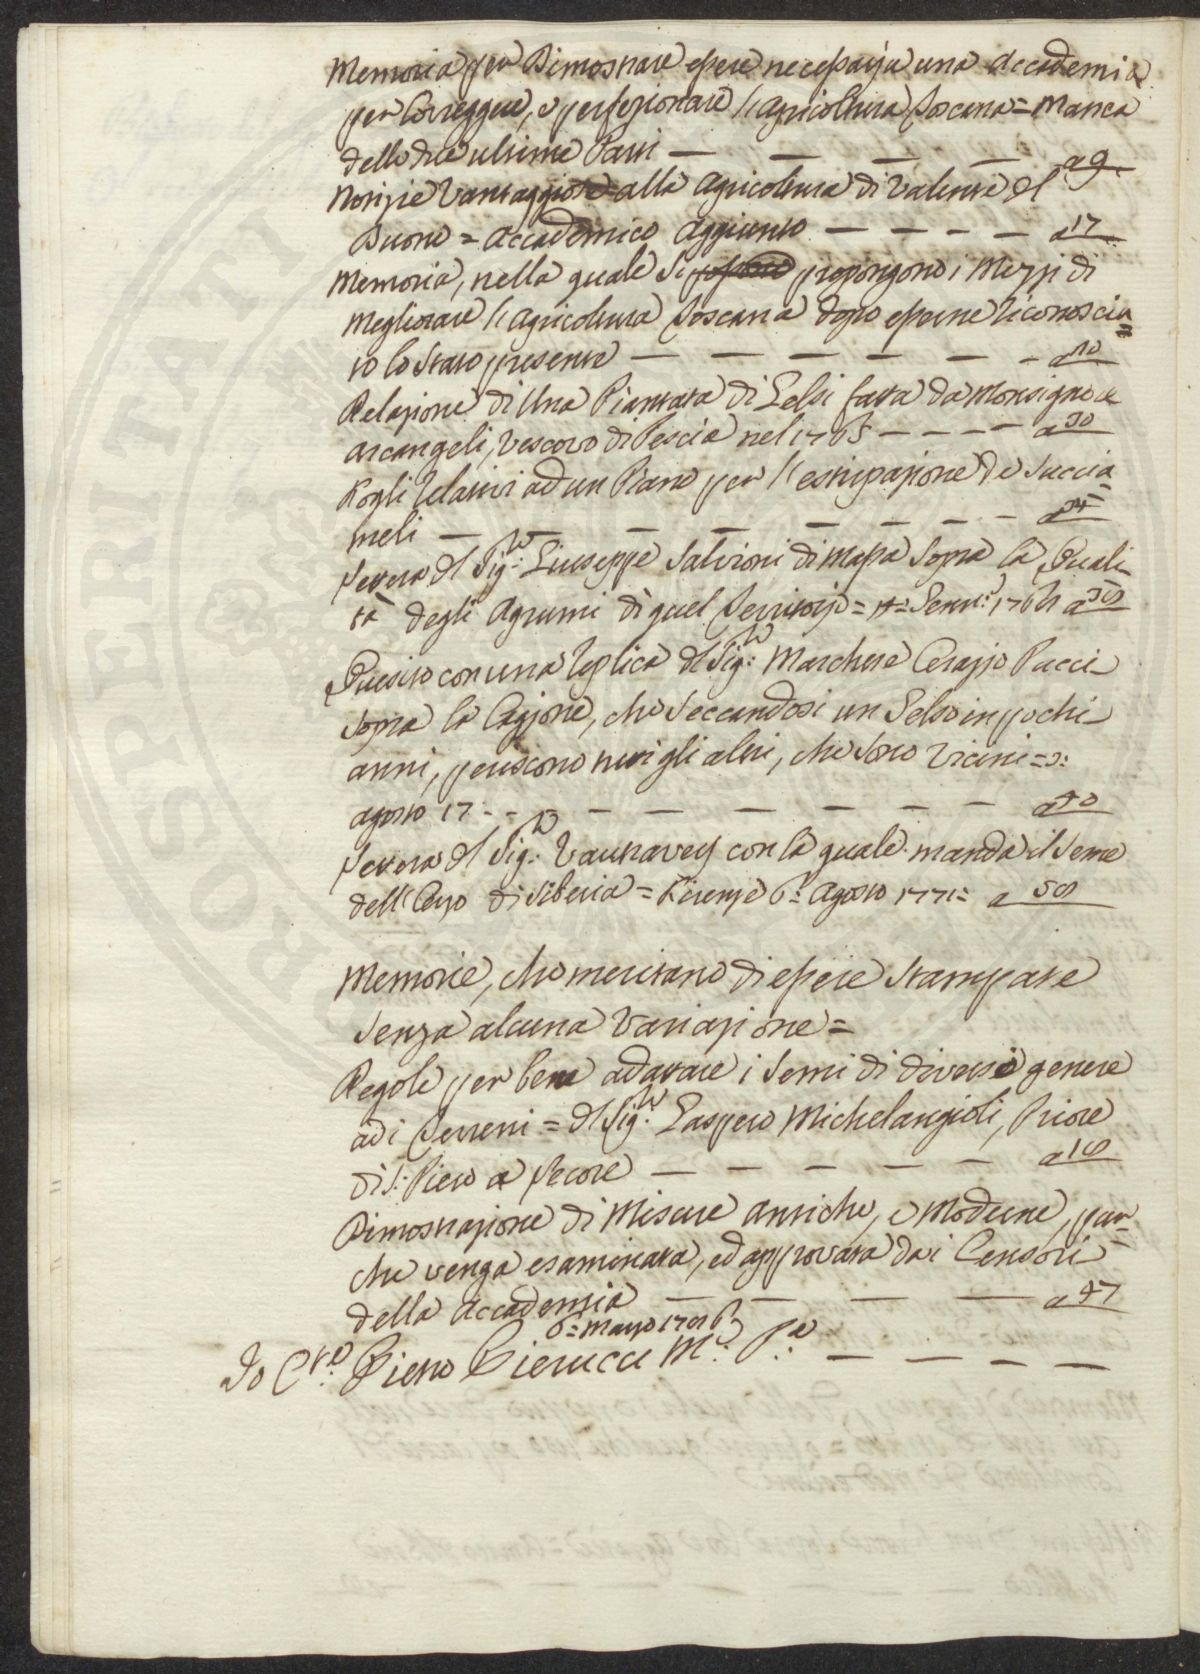 Memoria per Dimostrare essere necessaria una Accademia
per Correggere, e perfezionare l'Agricoltura Toscana = Manca
delle due ultime Parti — — — — a 9
Notizie Vantaggiose alla Agricoltura di Valente del
Buono = Accademico Aggiunto — — — — a 17
Memoria, nella quale si propongono i Mezzi di
Megliorare l'Agricoltura Toscana dopo esserne riconosciu=
to lo Stato presente — — — — — — a 10
Relazione di Una Piantata di Gelsi fatta da Monsignore
Arcangeli, Vescovo di Pescia nel 1765 — — — — a 30
Fogli relativi ad un Piano per l'estirpazione de Succia=
meli — — — — — — — a
Lettera del Sig:re Giuseppe Salvioni di Massa Sopra la Quali
tà degli Agrumi di quel Territorio = = Genn:o a
Quesito con una replica del Sig:re Marchese Cerazzo Pucci
Sopra la Cagione, che Seccandosi un Gelso in pochi
anni, periscono tutti gli altri, che sono vicini =
agosto 17 — — — — — — — a
Lettera del Sig:re con la quale manda il Seme
dell' di Siberia = Firenze 6: Agosto 1771= a
Memorie, che meritano di essere Stampate
Senza alcuna Variazione =
Regole per bene adattare i Semi di diverso genere
ad i Terreni = del Sig:re Gaspero Michelangioli, Priore
di S: Piero a — — — — — a
Dimostrazione di Misure antiche, e Moderne, pur=
che venga esaminata, ed approvata dai Censori
della Accademia — — — — a 47
6= Marzo
Io Piero Pierucci M:o P:a — — — —